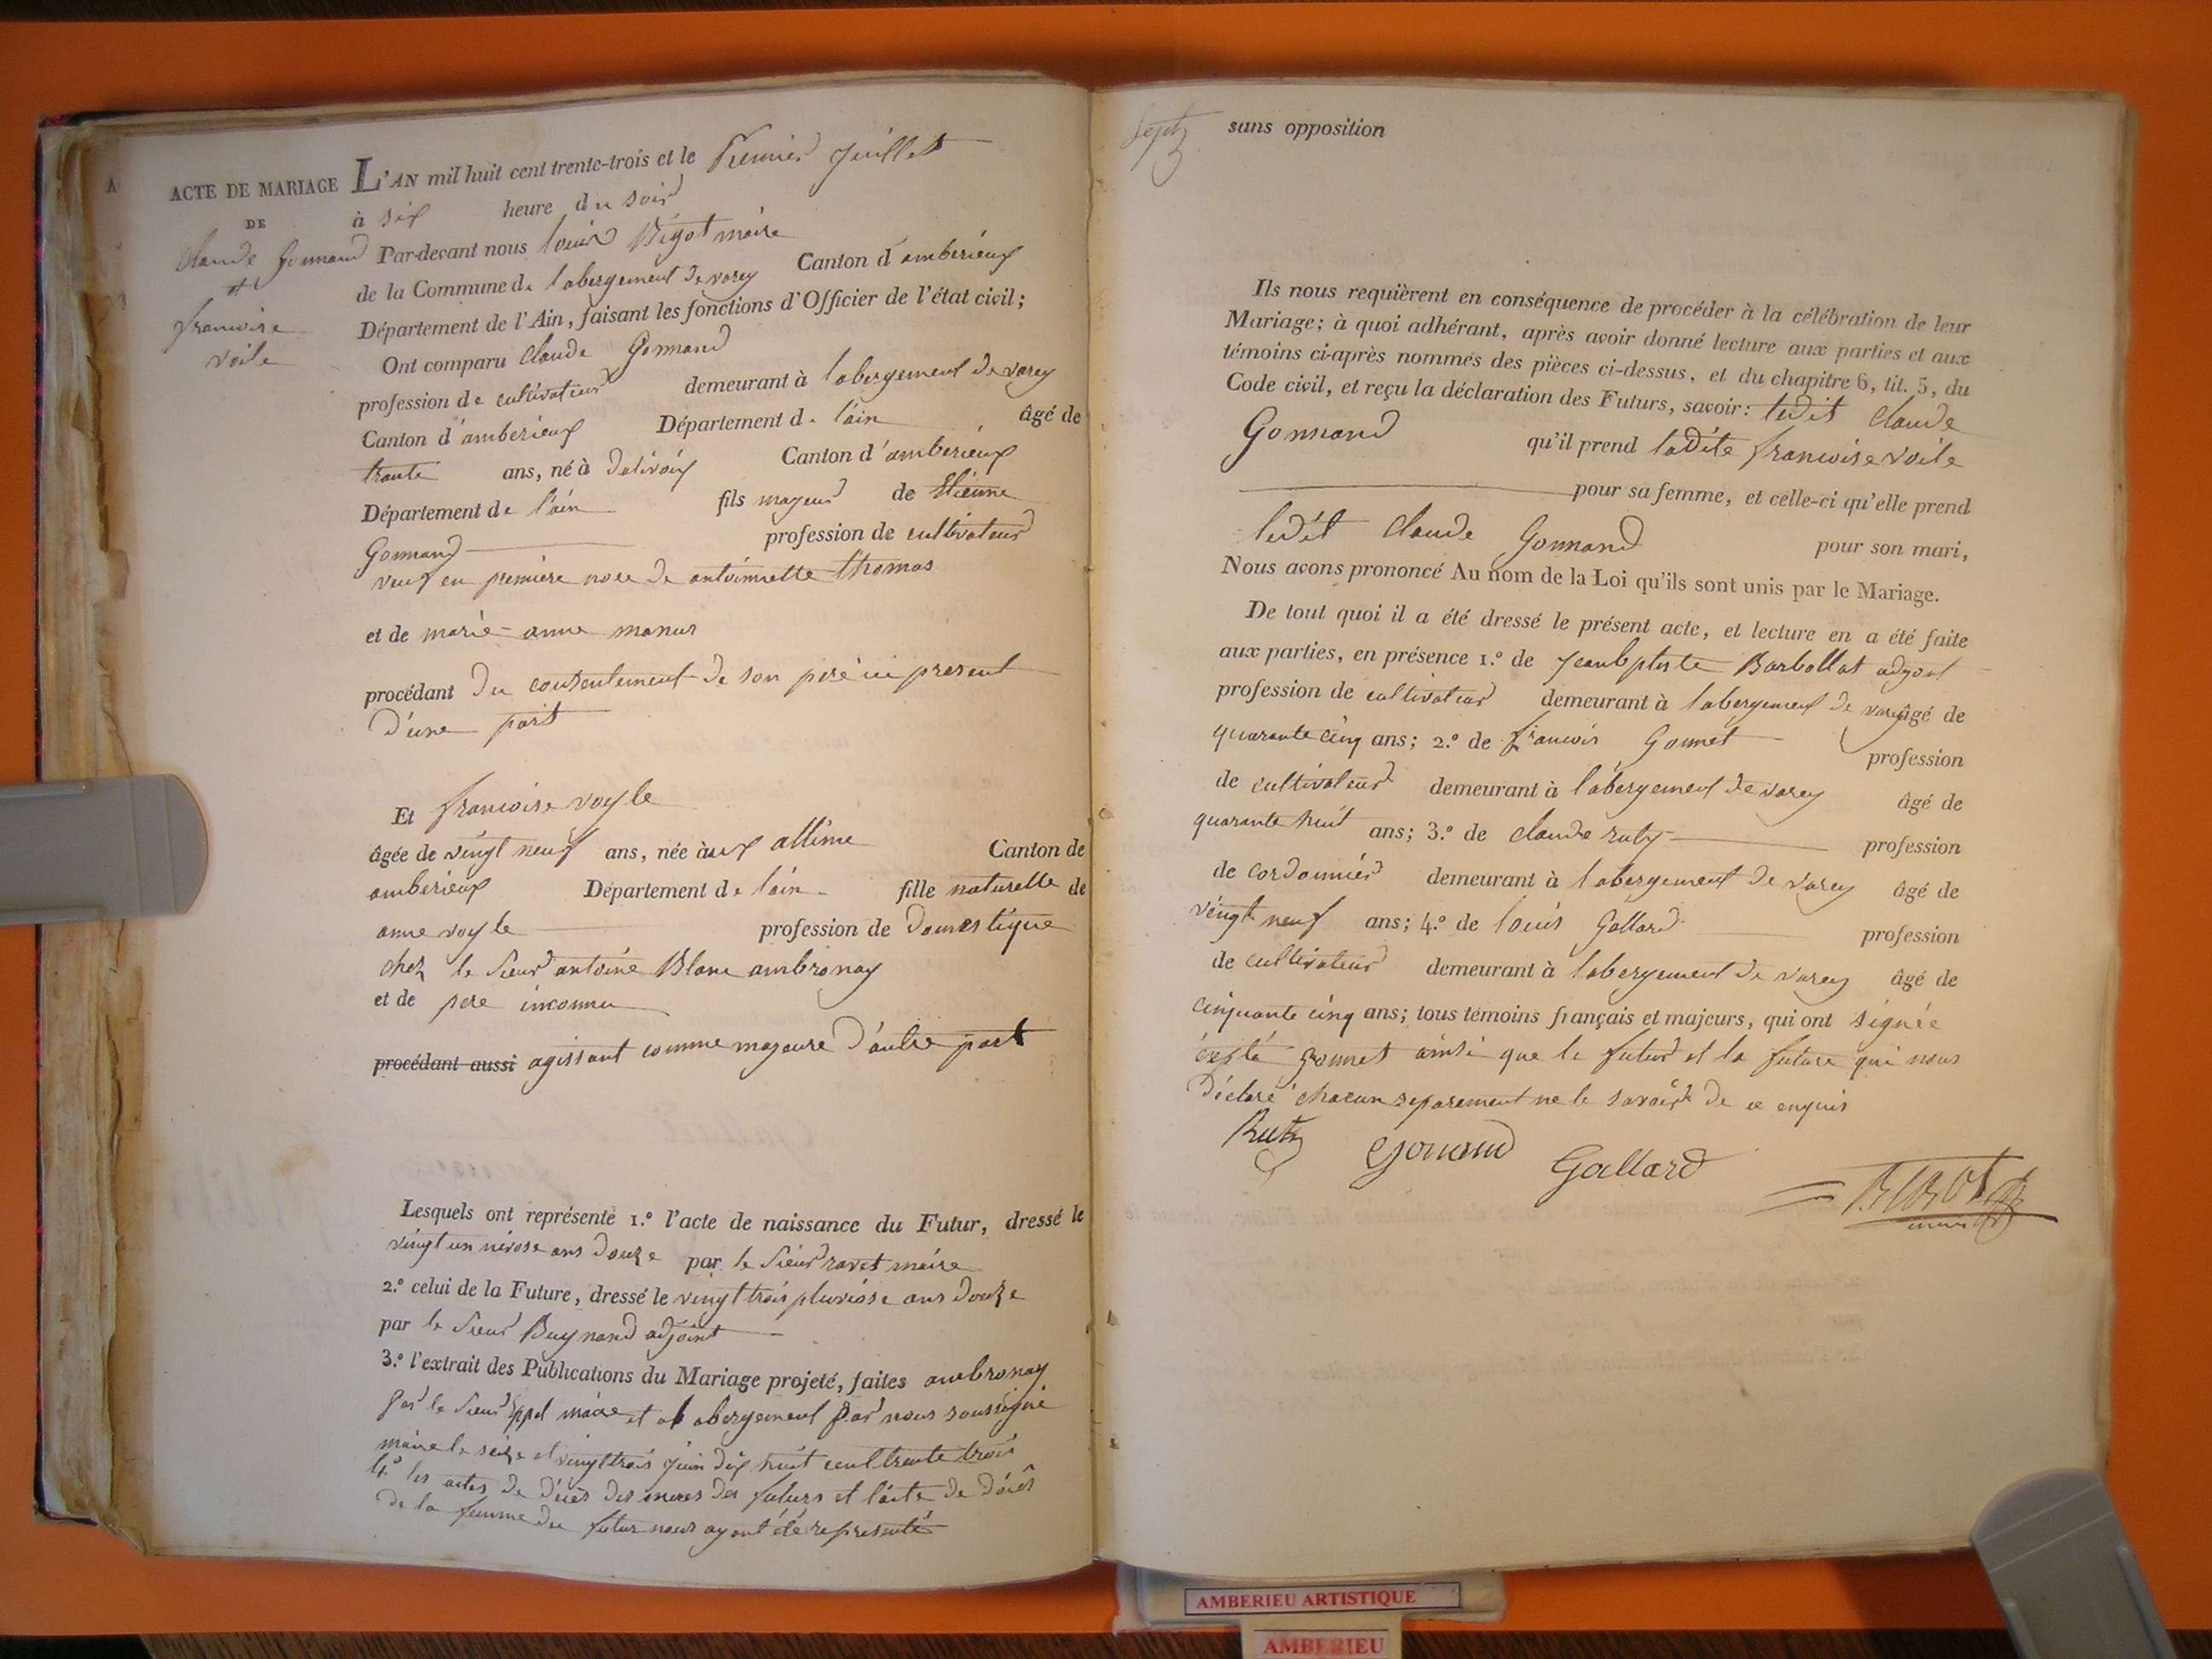 ACTE DE MARIAGE
DE
Claude Gonnand
et
francoise
voile
L'AN mil huit cent trente-trois et le Premier Juillet
à six heure du soir
Par-devant nous louis Bigot maire
de la Commune de labergement de varey Canton d'amberieux
Département de l'Ain, faisant les fonctions d'Officier de l'état civil;
Ont comparu Claude Gonnand
profession de cultivateur demeurant à labergement de varey
Canton d'amberieux Département de lain âgé de
trante ans, né à Canton d'amberieux
Département de l'ain fils majeur de Etienne
Gonnand profession de cultivateur
veuf en premiere noce de antoinette thomas
et de marie anne
procédant du consentement de son pere ici present
d'une part
Et francoise voyle
âgée de vingt neuf ans, née aux allime Canton de
amberieux Département de lain fille naturelle de
anne voyle profession de domestique
chez le sieur antoine Blanc ambronay
et de pere inconnu
procédant aussi agissant comme majeure d'autre part
Lesquels ont représenté 1.° l'acte de naissance du Futur, dressé le
vingt un nivose ans douze par le sieur ravet maire
2.° celui de la Future, dressé le vingt trois pluviose ans douze
par le sieur Buynand adjoint
3.° l'extrait des Publications du Mariage projeté, faites ambronay
par le sieur maire et abergement par nous soussigné
maire le seize et vingt trois juin dix huit cent trente trois
4° les actes de décès des meres des futurs et l'acte de décès
de la femme du futur nous ayant été representé
sans opposition
Ils nous requièrent en conséquence de procéder à la célébration de leur
Mariage; à quoi adhérant, après avoir donné lecture aux parties et aux
témoins ci-après nommés des pièces ci-dessus, et du chapitre 6, tit. 5, du
Code civil, et reçu la déclaration des Futurs, savoir: ledit Claude
Gonnand qu'il prend ladite francoise voile
pour sa femme, et celle-ci qu'elle prend
ledit Claude Gonnand pour son mari,
Nous avons prononcé Au nom de la Loi qu'ils sont unis par le Mariage.
De tout quoi il a été dressé le présent acte, et lecture en a été faite
aux parties, en présence 1.° de Jeanbptiste Barbollat adjoint
profession de cultivateur demeurant à labergement de varey âgé de
quarante cinq ans; 2.° de francois Gonnet profession
de cultivateur demeurant à labergement de varey âgé de
quarante huit ans; 3.° de claude ruty profession
de cordonnier demeurant à labergement de varey âgé de
vingt neuf ans; 4.° de louis Gallard profession
de cultivateur demeurant à labergement de varey âgé de
cinquante cinq ans; tous témoins français et majeurs, qui ont signée
gonnet ainsi que le futur et la future qui nous
déclaré chacun separement ne le savoir de ce enquis
Ruty Gallard
BIGOT
AMBERIEU ARTISTIQUE
AMBERIEU